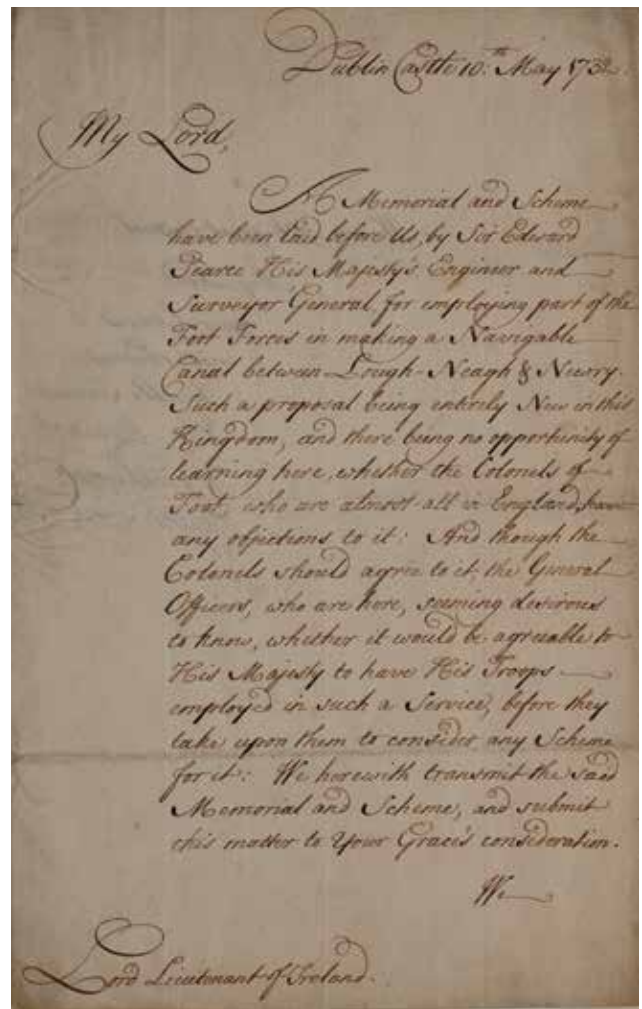 Dublin Castle 10.th May 1732.
My Lord,
A Memorial and Scheme
have been laid before Us, by Sir Edward
Pearce His Majesty's Engineer and
Surveyor General, for employing part of the
Foot Forces in making a Navigable
Canal between Lough-Neagh & Newry.
Such a proposal being entirely New in this
Kingdom, and there being no opportunity of
learning here, whether the Colonels of
Foot, who are almost all in England, have
any objections to it: And though the
Colonels should agree to it, the General
Officers, who are here, seeming desirous
to know, whether it would be agreeable to
His Majesty to have His Troops
employed in such a Service, before they
take upon them to consider any Scheme
for it: We herewith transmit the said
Memorial and Scheme, and submit
this matter to Your Grace's consideration.
We
Lord Lieutenant of Ireland.